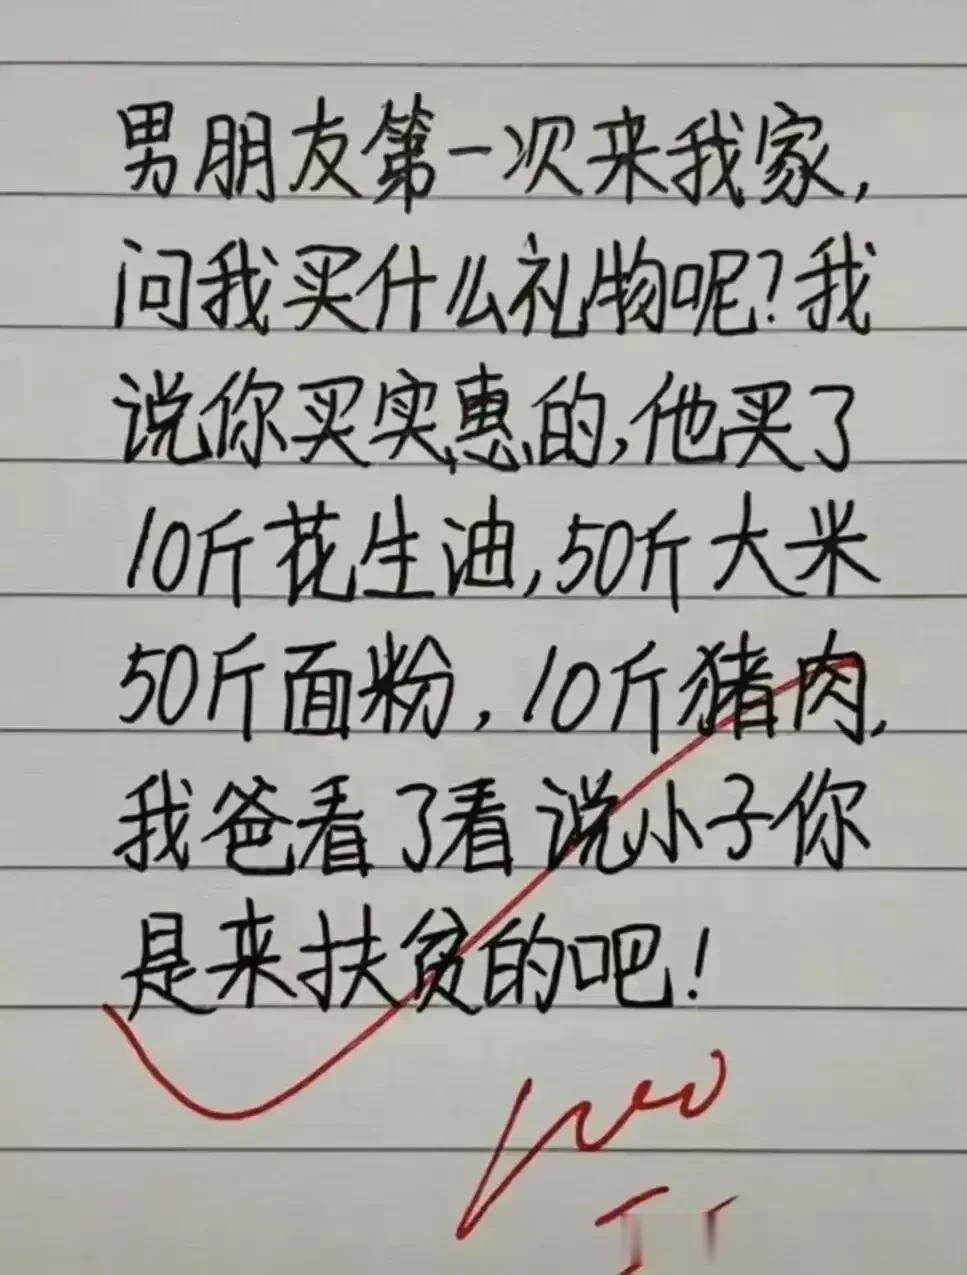 男朋友第一次来我家,
问我买什么礼物呢?我
说你买实惠的,他买了
10斤花生油,50斤大米
50斤面粉,10斤猪肉,
我爸看了看说小子你
是来扶贫的吧!